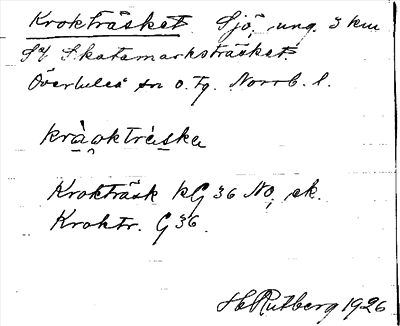 Krokträsket. Sjö, ung. 3 km
SV Skatamarksträsket.
Överluleå sn o. tg. Norrb. l.
kràoktrèska
Krokträsk kG 36 NO, ek.
Kroktr. G 36.
HRutberg 1926